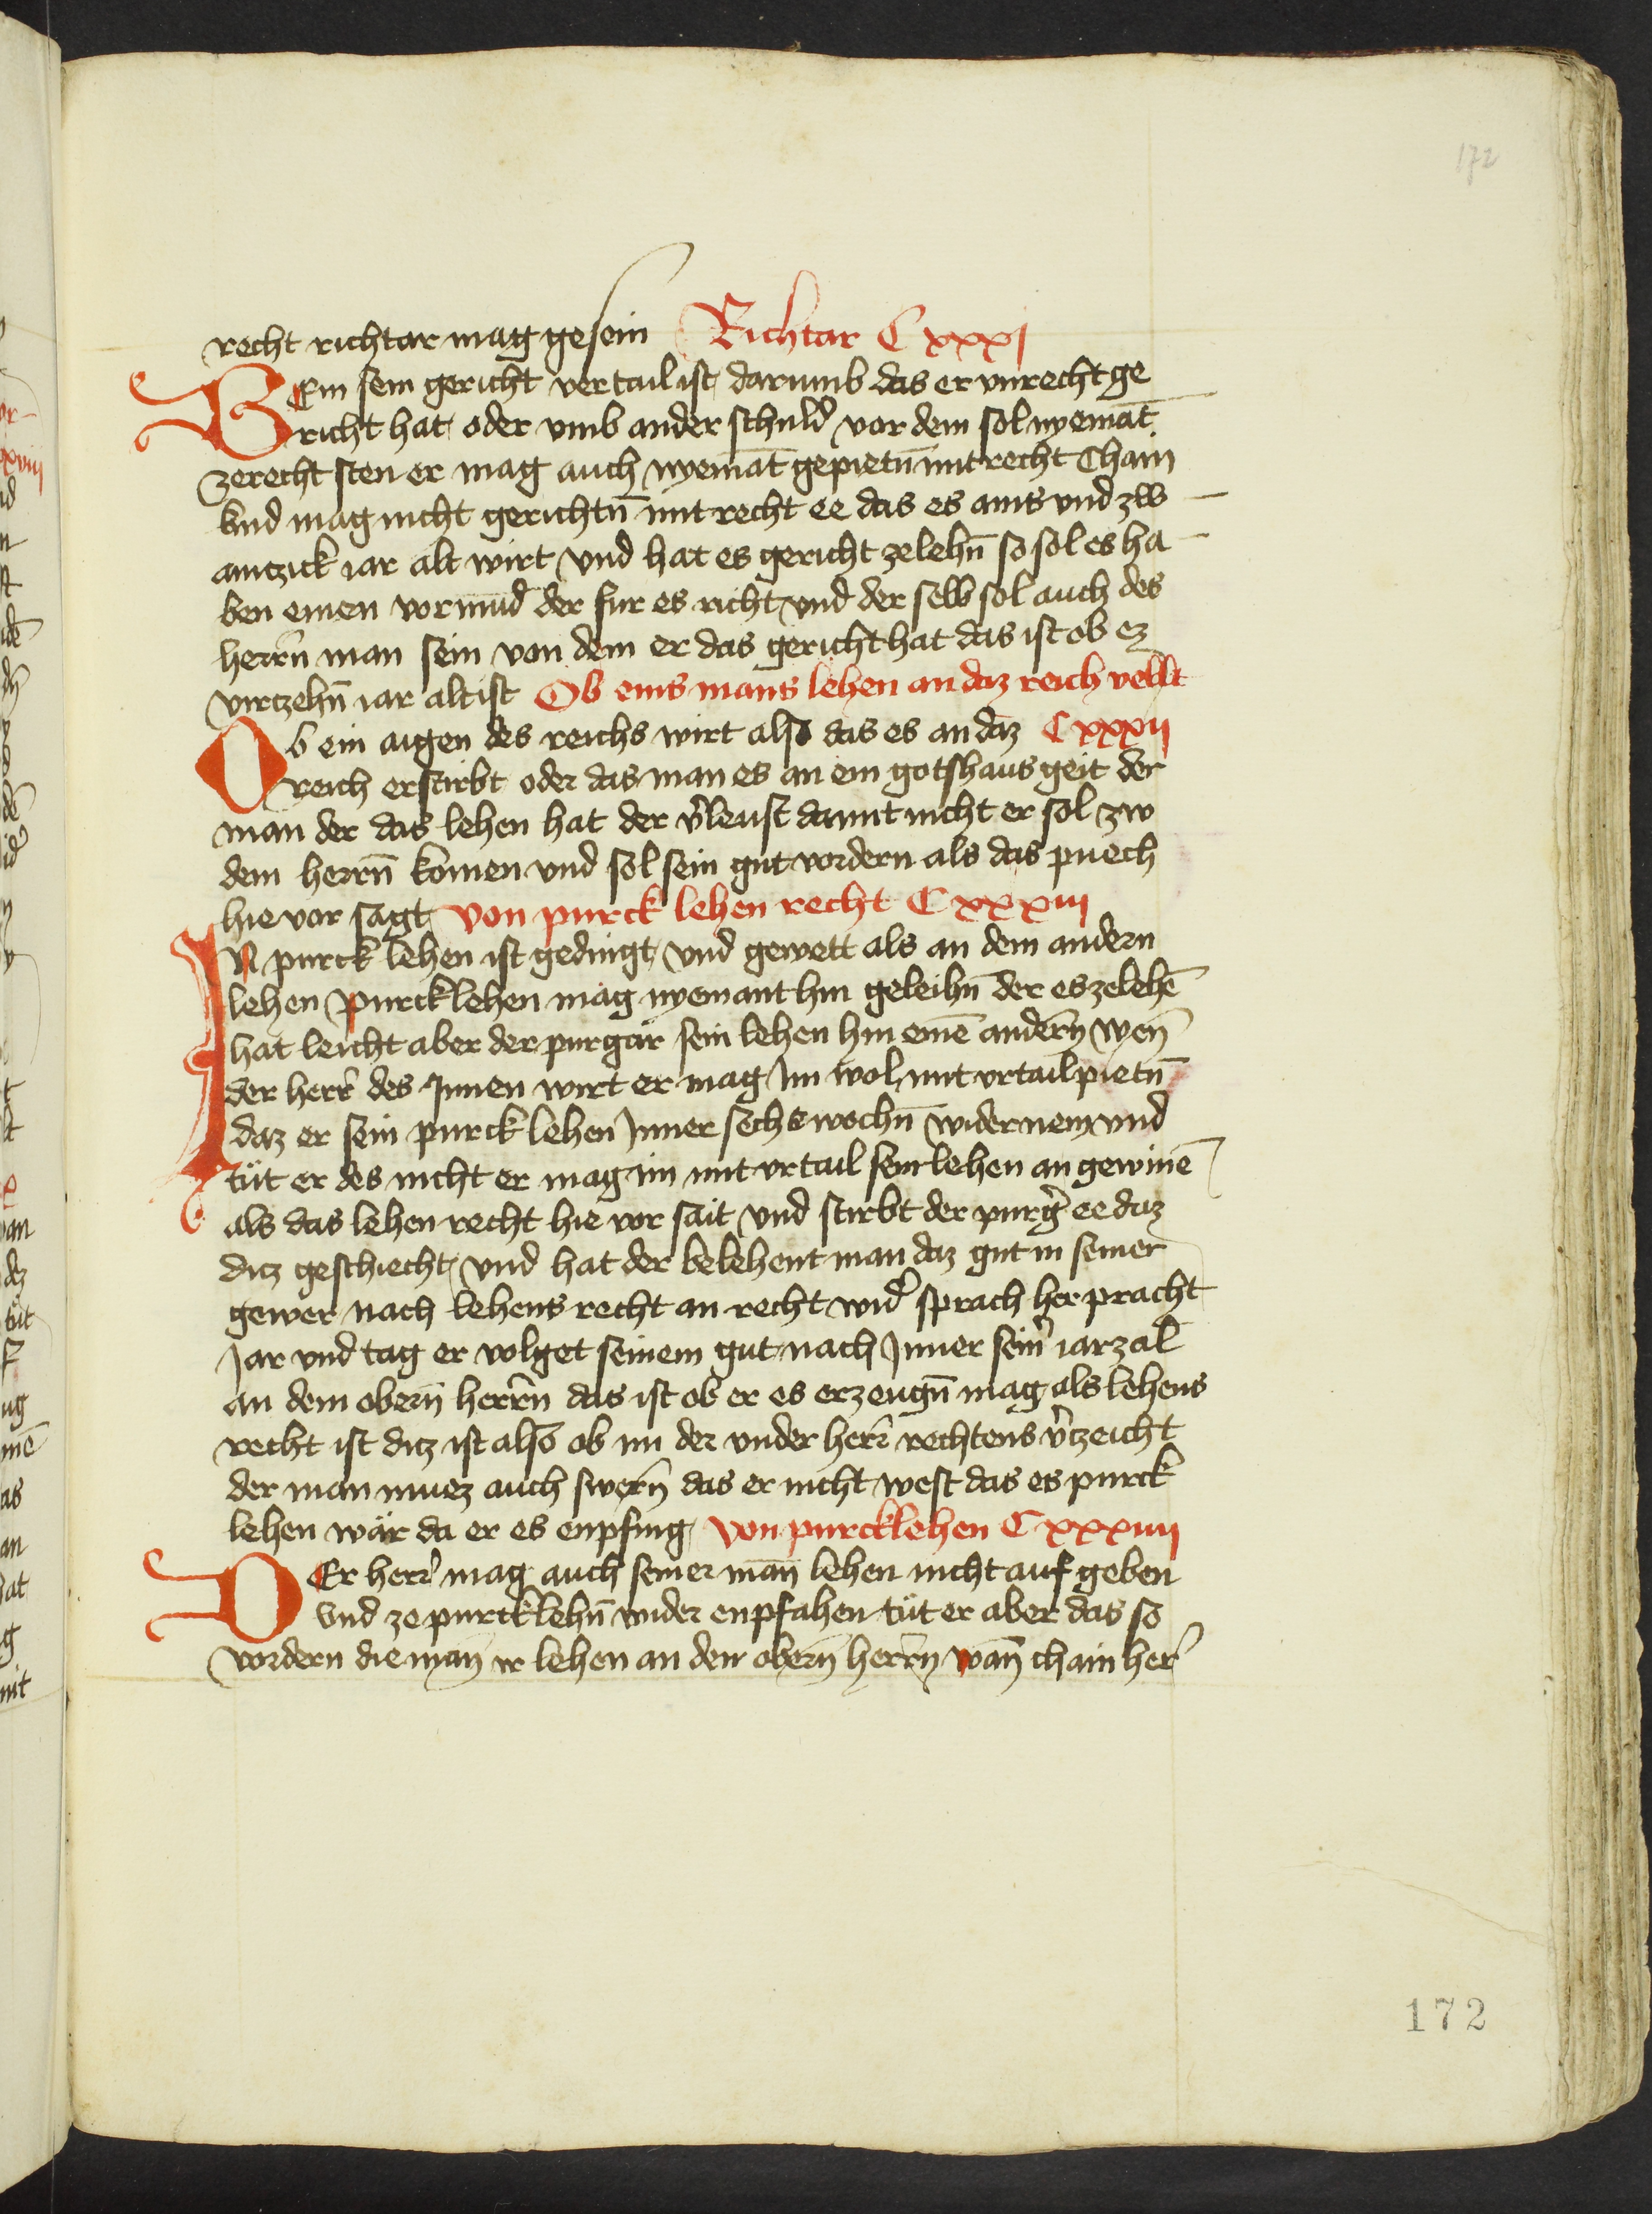 172
recht richtar mag gesein Richtar C xxxj
WEm sein gericht vertailt ist darumb das er vnrecht ge
richt hat oder vmb ander schuld vor dem sol nyemāt
zerecht sten er mag auch nyemāt gepietn̄ mit recht Chain
kind mag nicht gerichtn̄ mit recht ee das es ains vnd zw
aintzick iar alt wirt vnd hat es gericht zelehn̄ so sol es ha
ben einen vormūd der fur es richt vnd der selb sol auch des
herrn̄ man sein von dem er das gericht hat das ist ob ez
virtzehn̄ iar alt ist Ob eins mans lehen an daz reich vellt
Ob ein aigen des reichs wirt also das es an daz C xxxij
reich erstirbt oder das man es an ein gotshaus geit der
man der das lehen hat der v̄leust damit nicht er sol zw
dem herrn̄ komen vnd sol sein gut vordern als das puech
hie vor sagt von purck lehen recht C xxxiij
IN purck lehen ist gedingt vnd gewett als an dem andern
lehen purcklehen mag nyemant hin geleihn̄ der es zelehē
hat leicht aber der purgar sein lehen hin einē andern̄ wen̄
der herr̄ des Innen wirt er mag Im wol mit vrtail pietn̄
daz er sein purck lehen Inner sechs wochn̄ wider nem vnd
tüt er des nicht er mag im mit vrtail sein lehen an gewinē
als das lehen recht hie vor sait vnd stirbt der purḡ ee daz
ditz geschiecht vnd hat der belehent man daz gut in seiner
gewer nach lehens recht an recht wid̄ sprach her pracht
Jar vnd tag er volget seinem gut nach Inner sein̄ iarzal
an dem obern̄ herrn̄ das ist ob er es erzeugn̄ mag als lehens
recht ist ditz ist also ob im der vnder herr̄ rechtens v̄tzeicht
der man muez auch swern̄ das er nicht west das es purck
lehen wär da er es enpfing von purcklehen C xxxiiij
DEr herr̄ mag auch seiner man̄ lehen nicht auf geben
vnd ze purcklehn̄ wider enpfahen tüt er aber das so
vordern die man̄ ir lehen an den obern̄ herrn̄ wan̄ chain her̄
172